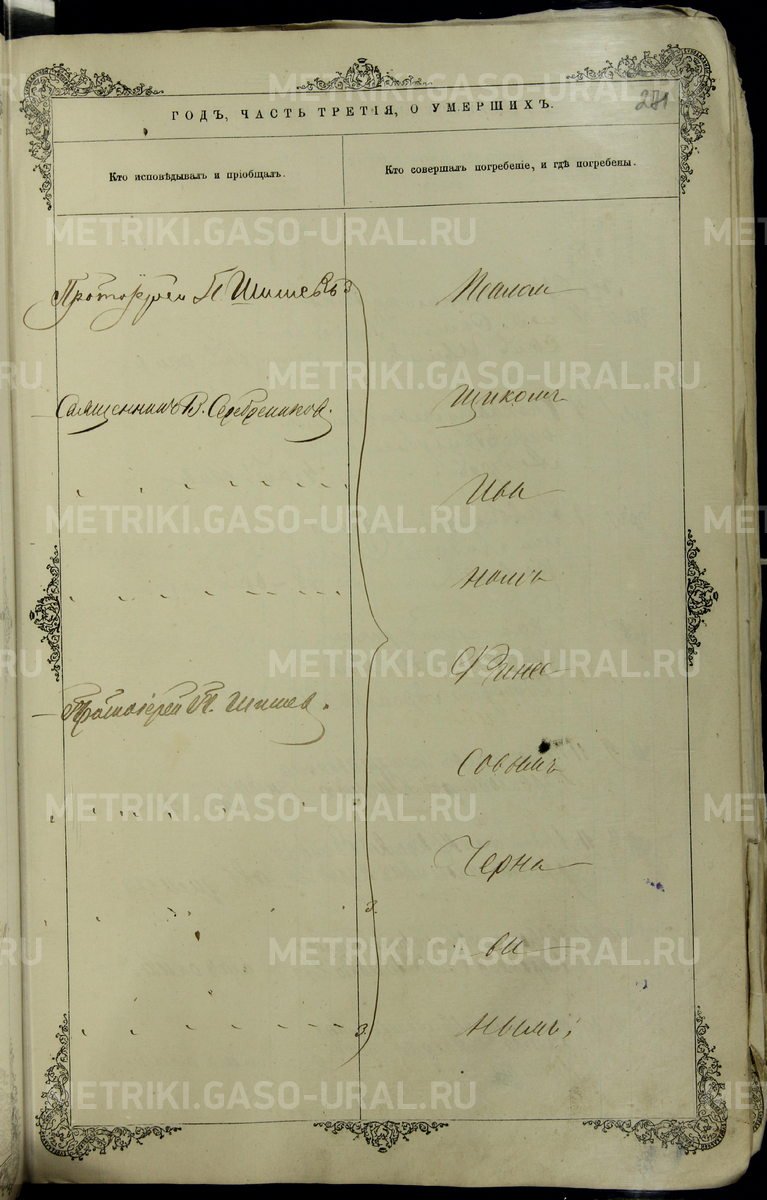 271
ГОДЪ, ЧАСТЬ ТРЕТІЯ, О УМЕРШИХЪ.
Кто исповѣдывалъ и пріобщалъ.
Кто совершалъ погребеніе, и гдѣ погребены.
Протоіерей П Шишевъ
Священникъ В. Серебренниковъ.
Протоіерей П. Шишев.
щикомъ
Ива
номъ
Фине
Совымъ
Черна
ви
нымъ;
METRIKI.GASO-URAL.RU
METRIKI.GASO-URAL.RU
METRIKI.GASO-URAL.RU
METRIKI.GASO-URAL.RU
METRIKI.GASO-URAL.RU
METRIKI.GASO-URAL.RU
METRIKI.GASO-URAL.RU
METRIKI.GASO-URAL.RU